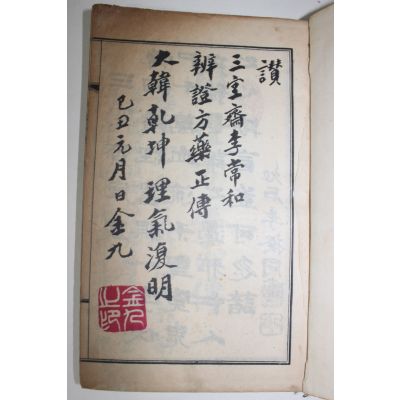 讃
三空齋李常和
辨證方藥正傳
大韓乾坤理氣復明
己丑元月日金九
金九之印